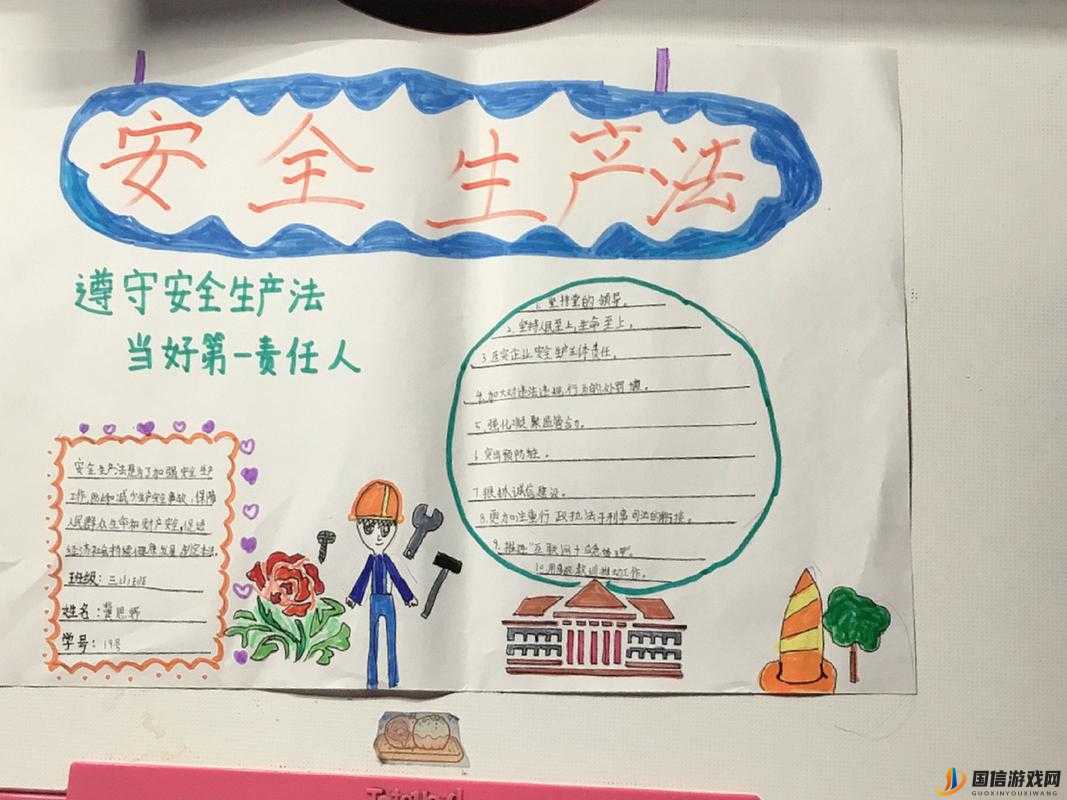 安全生产法
遵守安全生产法
当好第一责任人
安全生产法是为了加强安全生产
工作,防止和减少生产安全事故,保障
人民群众生命和财产安全,促进
经济社会持续健康发展,制定本法.
班级:三(1)班
姓名:
学号:19号
1.坚持党的领导.
2.坚持人民至上,生命至上.
3.压实企业安全生产主体责任.
4.加大对违法违规行为的处罚
5.强化
6.突出预防
7.狠抓诚信建设。
8.更加注重行政执法与刑事司法的衔接。
9.推进“互联网+
10.用事故教训推动工作。
国信游戏网
GUOXINYOUXIWANG